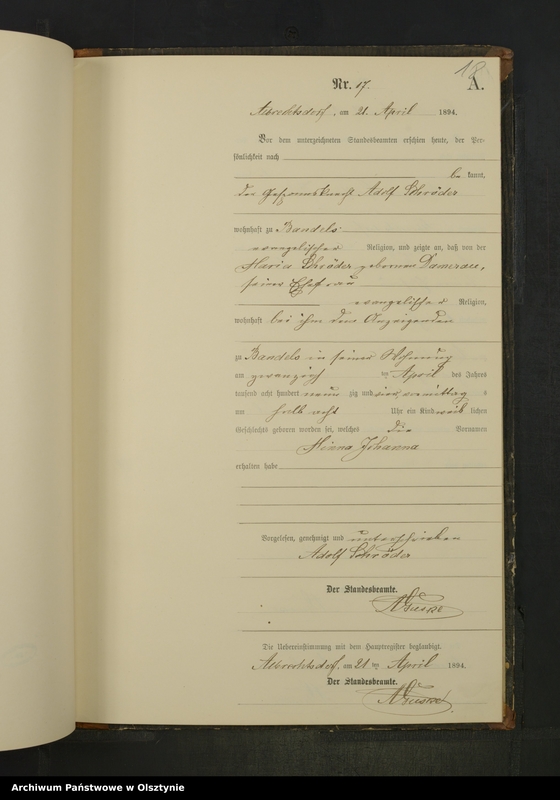 18
Nr. 17. A.
Albrechtsdorf, am 21. April 1894.
Vor dem unterzeichneten Standesbeamten erschien heute, der Per-
sönlichkeit nach
be kannt,
der Adolf Schröder
wohnhaft zu Bandels
evangelischer Religion, und zeigte an, daß von der
Maria Schröder geborenen Damerau,
seiner Ehefrau
evangelischer Religion,
wohnhaft bei ihm dem Anzeigenden
zu Bandels in seiner Wohnung
am zwanzig ten April des Jahres
tausend acht hundert neun zig und vier vormittag s
um halb acht Uhr ein Kind weib lichen
Geschlechts geboren worden sei, welches die Vornamen
Minna Johanna
erhalten habe
Vorgelesen, genehmigt und unterschrieben
Adolf Schröder
Der Standesbeamte.
Die Uebereinstimmung mit dem Hauptregister beglaubigt.
Albrechtsdorf, am 21 ten April 1894.
Der Standesbeamte.
Archiwum Państwowe w Olsztynie